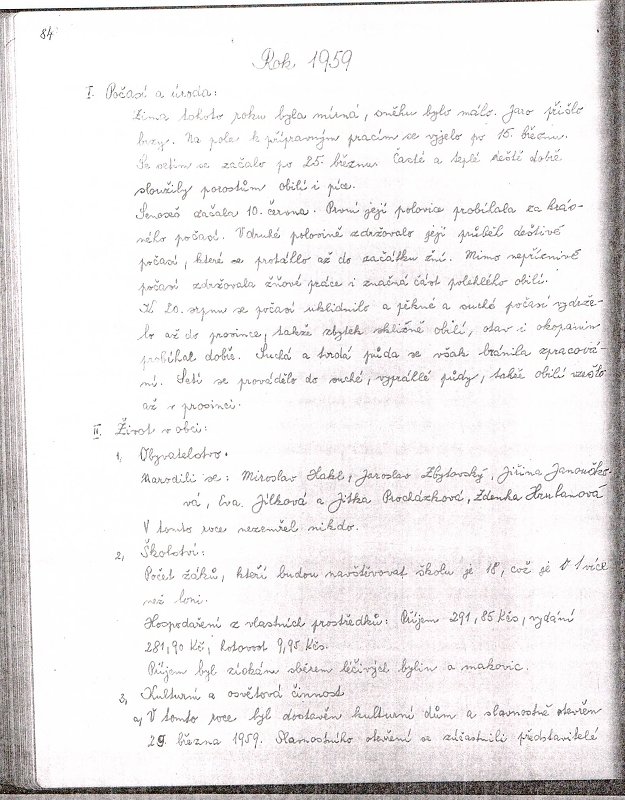 84
Rok 1959
I. Počasí a úroda:
Zima tohoto roku byla mírná, sněhu bylo málo. Jaro přišlo
brzy. Na pole k přípravným pracím se vyjelo po 15. březnu.
Se setím se začalo po 25. březnu. Časté a teplé deště dobře
sloužily porostům obilí i píce.
Senoseč začala 10. června. První její polovice probíhala za krás-
ného počasí. V druhé polovině zdržovalo její průběh deštivé
počasí, které se protáhlo až do začátku žní. Mimo nepříznivé
počasí zdržovala žňové práce i značná část polehlého obilí.
K 20. srpnu se počasí uklidnilo a pěkné a suché počasí vydrže-
lo až do prosince, takže zbytek sklizně obilí, otav i okopanin
probíhal dobře. Suchá a tvrdá půda se však bránila zpracová-
ní. Setí se provádělo do suché, vyprahlé půdy, takže obilí vzešlo
až v prosinci.
II. Život v obci:
1, Obyvatelstvo.
Narodili se: Miroslav Hakl, Jaroslav Zbytovský, Jiřina Janouchko-
vá, Eva Jílková a Jitka Procházková, Zdenka Hrubanová
V tomto roce nezemřel nikdo.
2, Školství:
Počet žáků, kteří budou navštěvovat školu je 18, což je o 1 více
než loni.
Hospodaření z vlastních prostředků: Příjem 291,85 Kčs, vydání
281,90 Kč, hotovost 9,95 Kčs.
Příjem byl získán sběrem léčivých bylin a makovic.
3, Kulturní a osvětová činnost
a, V tomto roce byl dostavěn kulturní dům a slavnostně otevřen
29. března 1959. Slavnostního otevření se zúčastnili představitelé